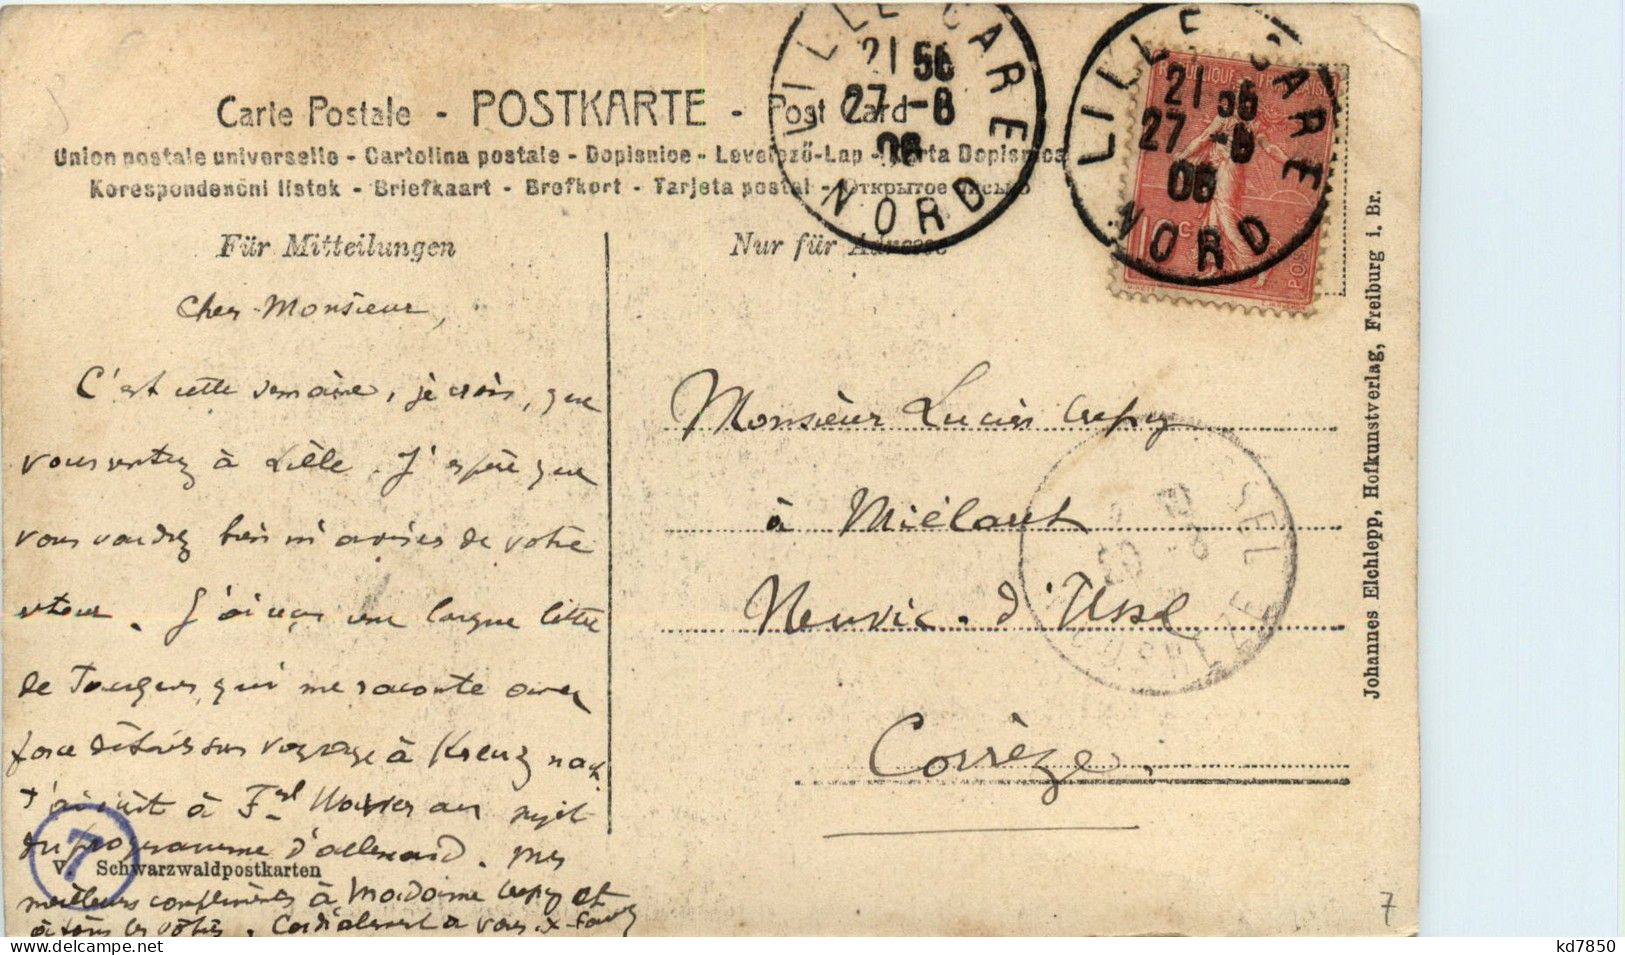 Carte Postale - POSTKARTE - Post Card
Union postale universelle - Cartolina postale - Dopisnice - Levelező-Lap - Karta Dopisnica
Korespondenční listek - Briefkaart - Brefkort - Tarjeta postal - Открытое письмо
Für Mitteilungen
Nur für Adresse
LILLE GARE
21 50
27 -8
06
NORD
LILLE GARE
21 50
27 -8
06
NORD
REPUBLIQUE FRANÇAISE
10 c
POSTES
Cher Monsieur,
C'est cette semaine, je crois, que
vous rentrez à Lille. J'espère que
vous voudrez bien m'aviser de votre
retour. J'ai reçu une longue lettre
de qui me raconte avec
force détails son voyage à Kreuznach
J'ai écrit à au sujet
du programme d'allemand. Mes
meilleurs compliments à Madame Crepy et
à tous les vôtres. Cordialement à vous.
Monsieur Lucien Crepy
à Miélaut
Neuvic. d'Ussel
Corrèze.
CORREZE
7
V. Schwarzwaldpostkarten
Johannes Elchlepp, Hofkunstverlag, Freiburg i. Br.
7
https://www.delcampe.net
kd7850